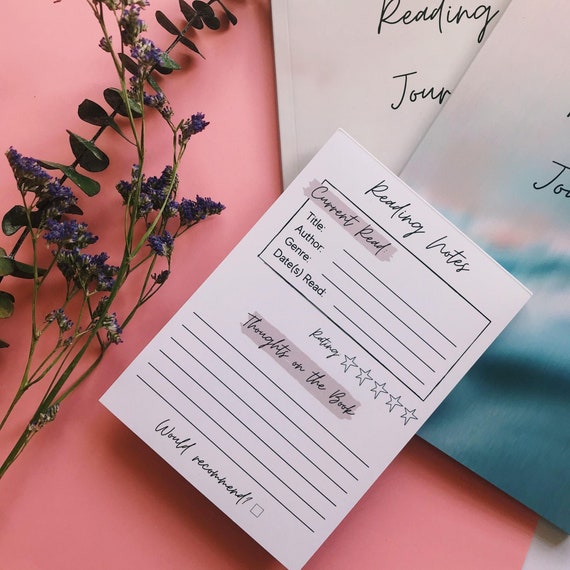 Reading
Jour
Jou
Reading Notes
Current Read
Title:
Author:
Genre:
Date(s) Read:
Rating
Thoughts on the Book
Would recommend?